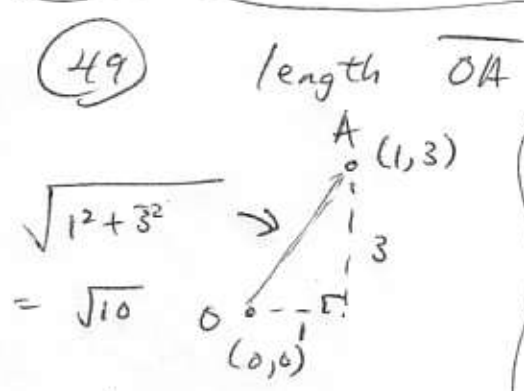 49 length OA
A
(1,3)
√1² + 3²
3
= √10
O
1
(0,0)